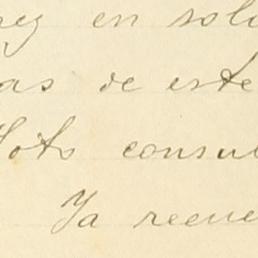 rey en sol
as de este
Tots consul
Ya recue